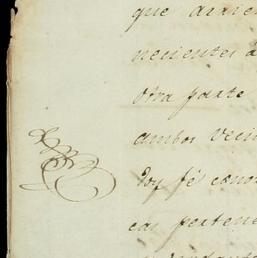 que arrien
necientes a
otra parte
ambos vecin
doy fé cono
cas pertene